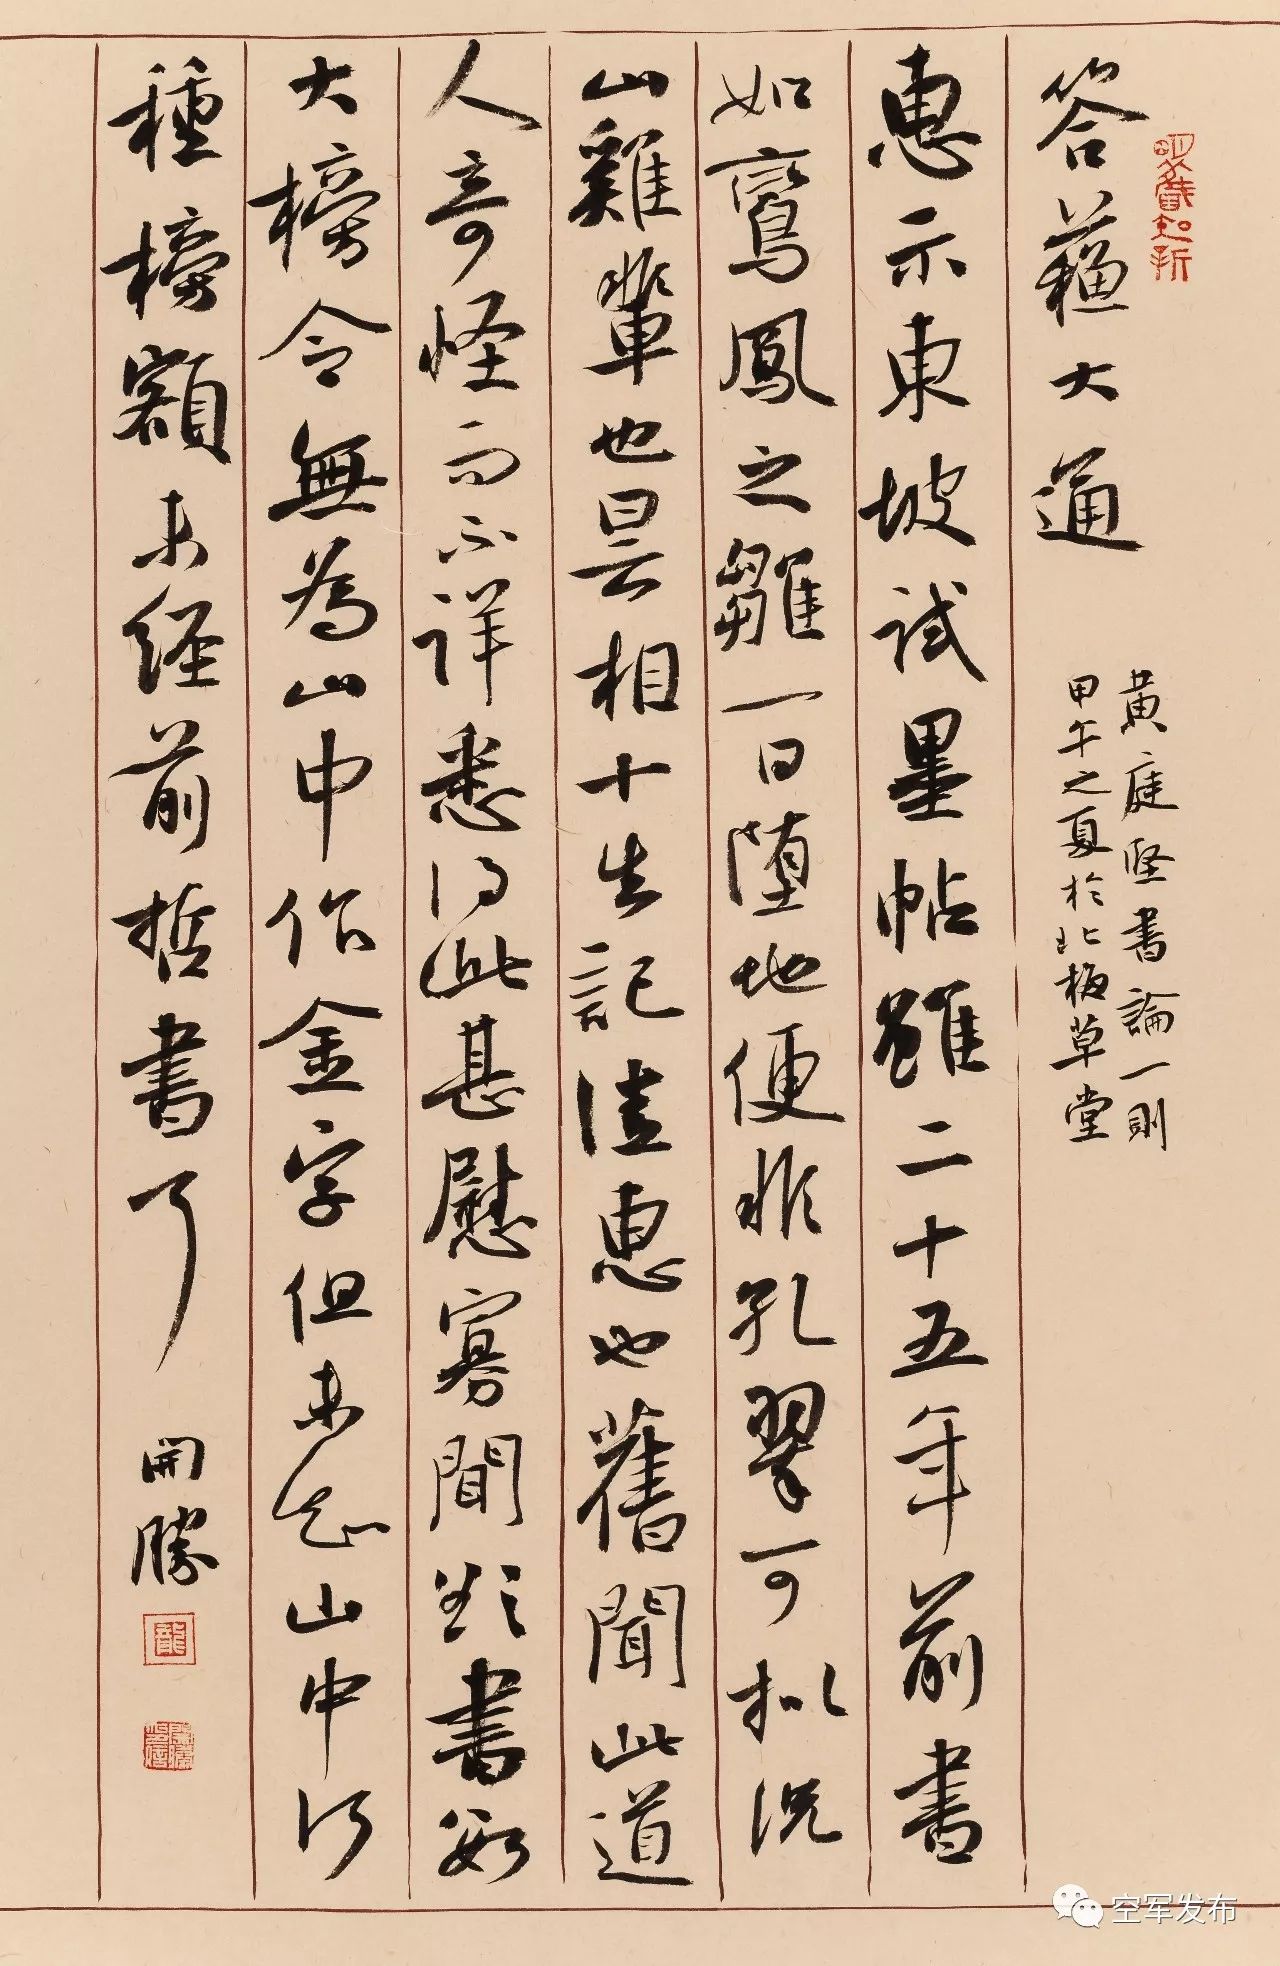 答蘇大通
黄庭堅書論一則
甲午之夏於北梅草堂
惠示東坡試墨帖雖二十五年前書
如鸞鳳之雛一日墮地便非孔翠可擬況
山雞輩也曇相十生記佳惠也舊聞此道
人奇怪而不詳悉得此甚慰寡聞欵書數
大榜今無為山中作金字但未知山中何
種榜額未經前哲書了
開勝
空军发布